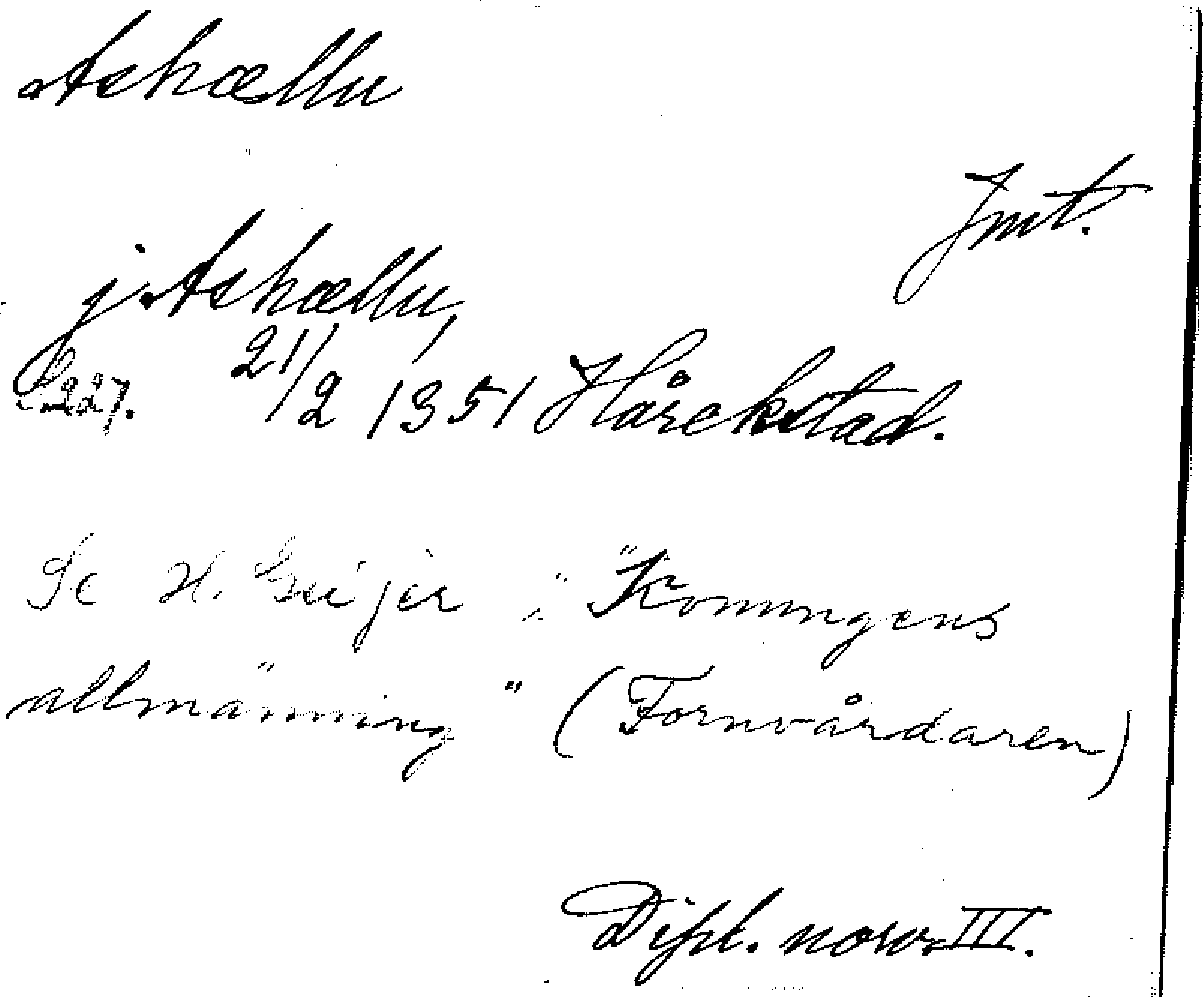 Ashællu
Jmt.
j Ashællu,
S. 227. 21/2 1351 Hårekstad.
Se H. Geijer i "Konungens
allmänning" (Fornvårdaren)
Dipl. norv. III.